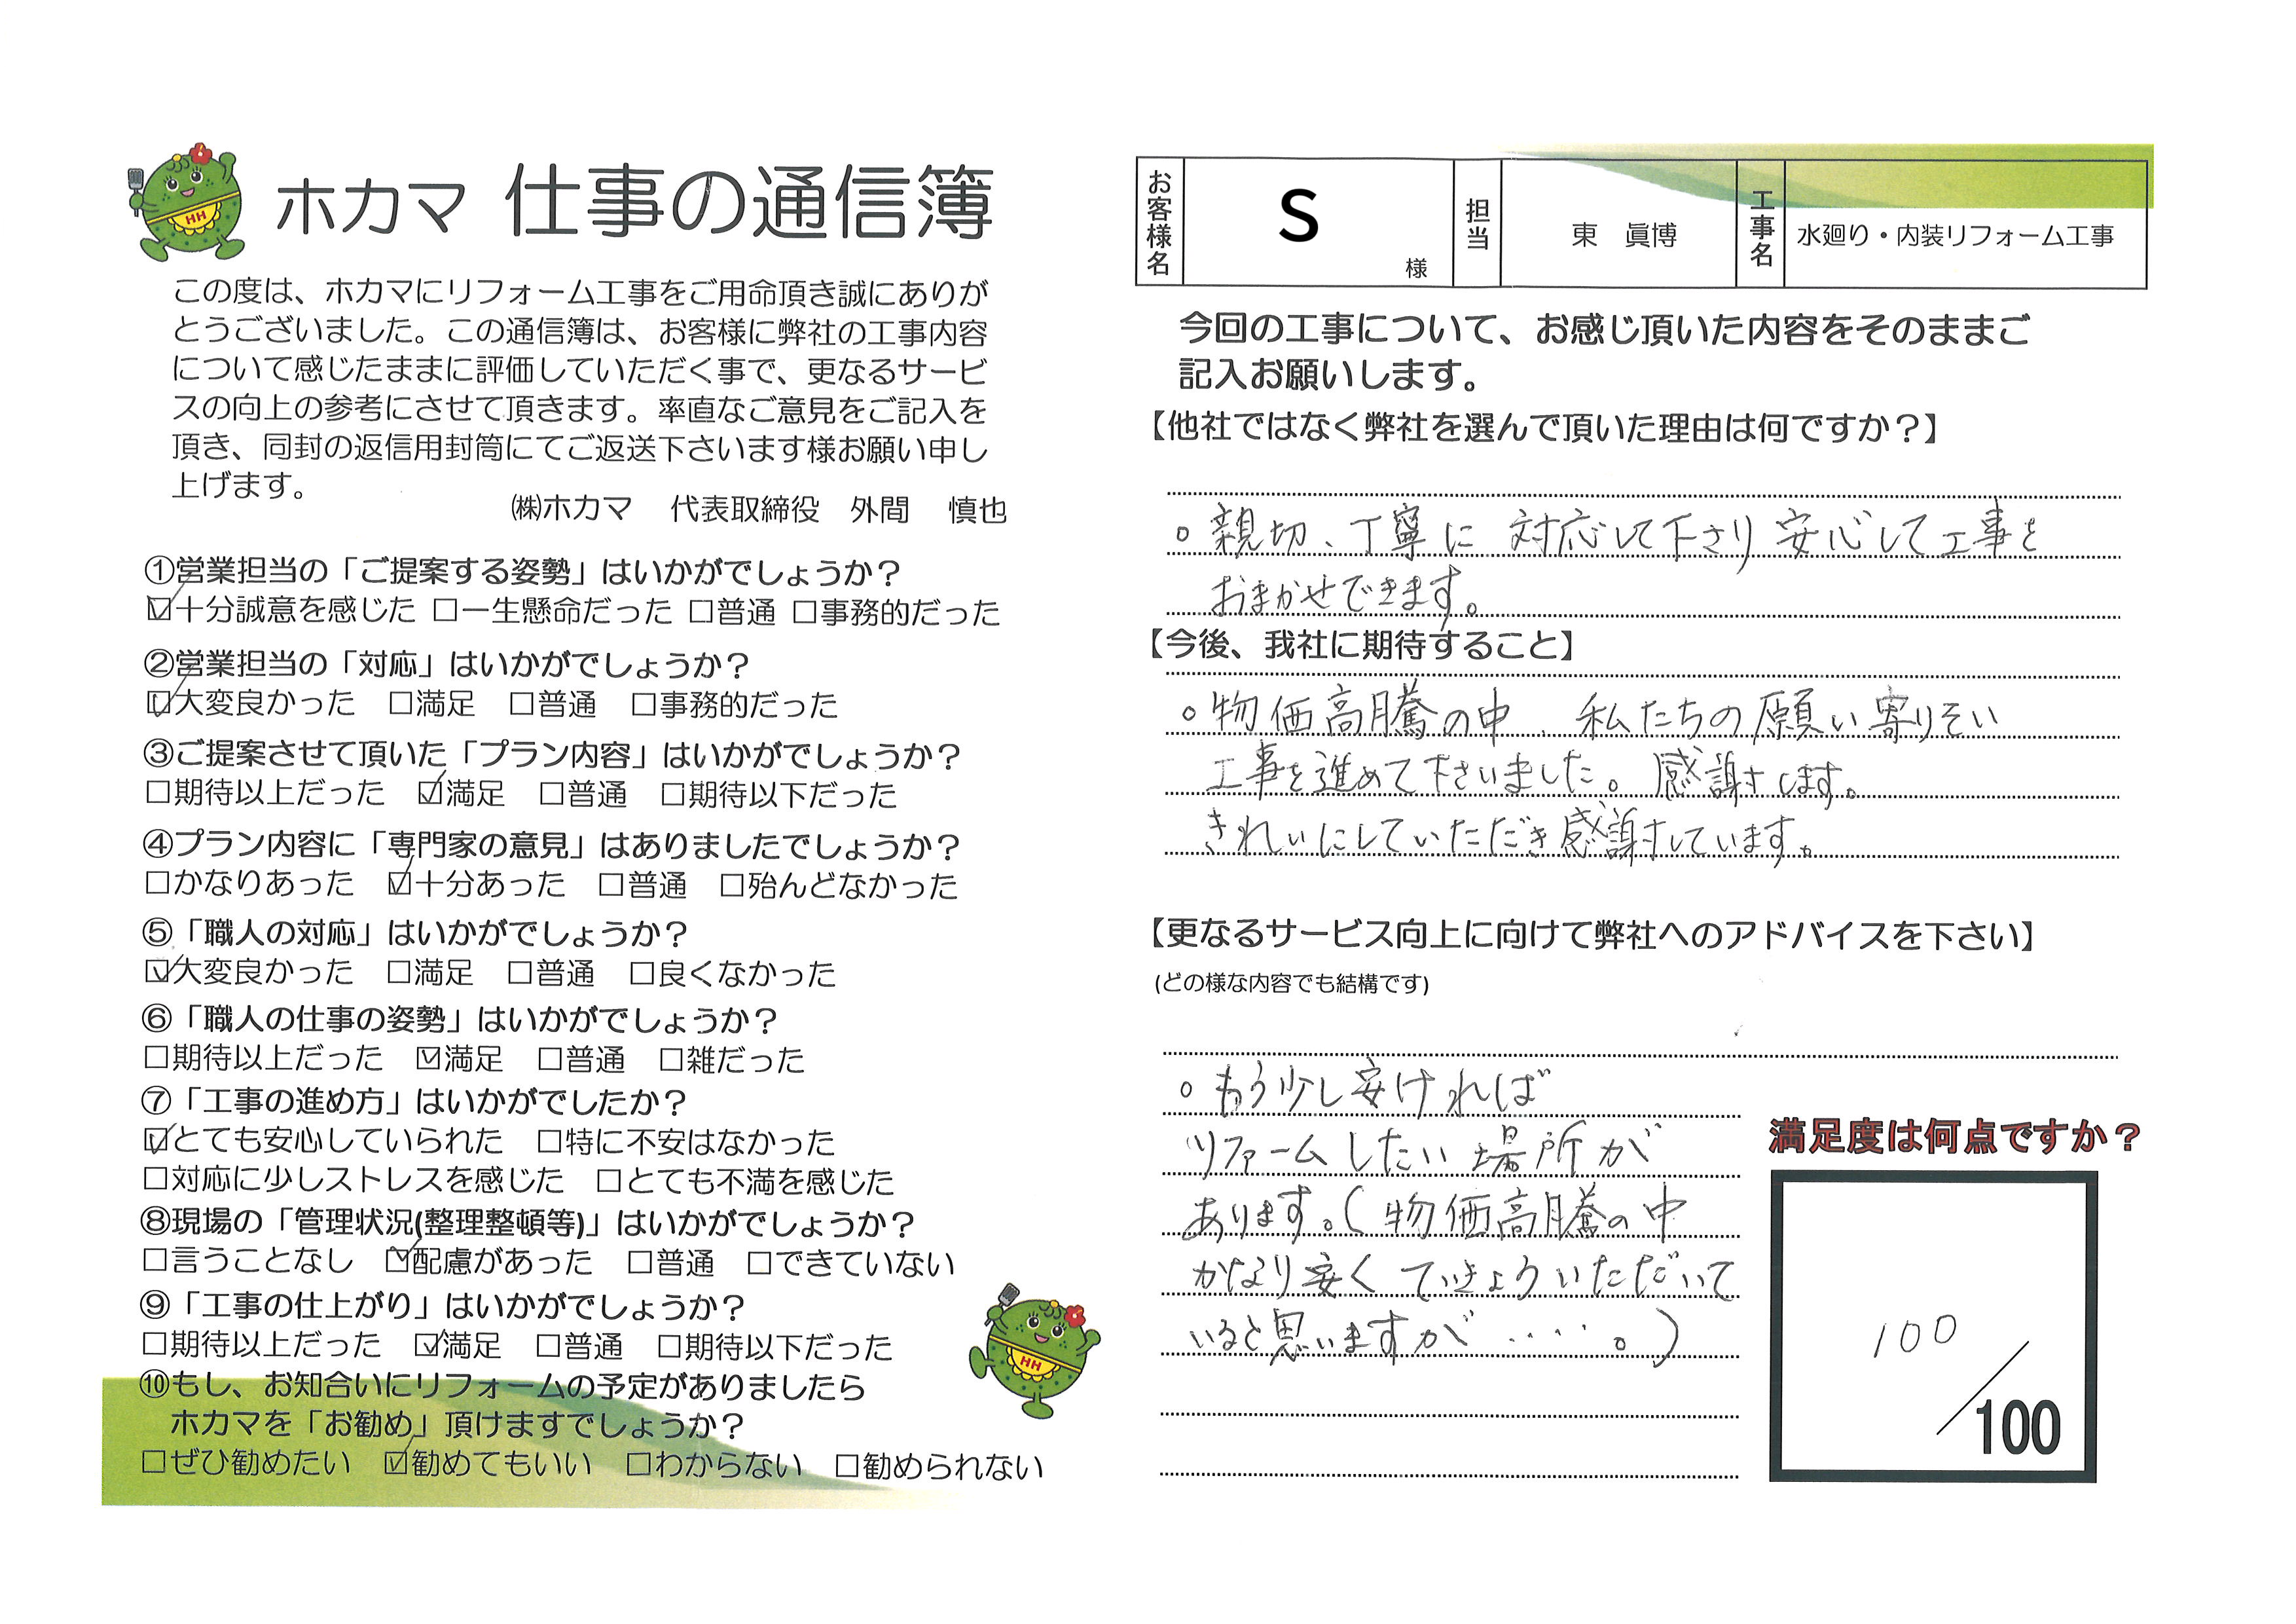 ホカマ 仕事の通信簿
この度は、ホカマにリフォーム工事をご用命頂き誠にありが
とうございました。この通信簿は、お客様に弊社の工事内容
について感じたままに評価していただく事で、更なるサービ
スの向上の参考にさせて頂きます。率直なご意見をご記入を
頂き、同封の返信用封筒にてご返送下さいます様お願い申し
上げます。
㈱ホカマ 代表取締役 外間 慎也
①営業担当の「ご提案する姿勢」はいかがでしょうか？
☑十分誠意を感じた □一生懸命だった □普通 □事務的だった
②営業担当の「対応」はいかがでしょうか？
☑大変良かった □満足 □普通 □事務的だった
③ご提案させて頂いた「プラン内容」はいかがでしょうか？
□期待以上だった ☑満足 □普通 □期待以下だった
④プラン内容に「専門家の意見」はありましたでしょうか？
□かなりあった ☑十分あった □普通 □殆んどなかった
⑤「職人の対応」はいかがでしょうか？
☑大変良かった □満足 □普通 □良くなかった
⑥「職人の仕事の姿勢」はいかがでしょうか？
□期待以上だった ☑満足 □普通 □雑だった
⑦「工事の進め方」はいかがでしたか？
☑とても安心していられた □特に不安はなかった
□対応に少しストレスを感じた □とても不満を感じた
⑧現場の「管理状況(整理整頓等)」はいかがでしょうか？
□言うことなし ☑配慮があった □普通 □できていない
⑨「工事の仕上がり」はいかがでしょうか？
□期待以上だった ☑満足 □普通 □期待以下だった
⑩もし、お知合いにリフォームの予定がありましたら
ホカマを「お勧め」頂けますでしょうか？
□ぜひ勧めたい ☑勧めてもいい □わからない □勧められない
HH
HH
お客様名 S 様 担当 東 眞博 工事名 水廻り・内装リフォーム工事
今回の工事について、お感じ頂いた内容をそのままご
記入お願いします。
【他社ではなく弊社を選んで頂いた理由は何ですか？】
○親切、丁寧に 対応して下さり 安心して工事を
おまかせできます。
【今後、我社に期待すること】
○物価高騰の中、私たちの願い寄りそい
工事を進めて下さいました。感謝します。
きれいにしていただき感謝しています。
【更なるサービス向上に向けて弊社へのアドバイスを下さい】
(どの様な内容でも結構です)
○もう少し安ければ
リフォームしたい場所が
あります。(物価高騰の中
かなり安くていきょういただいて
いると思いますが‥‥。)
満足度は何点ですか？
100
／100